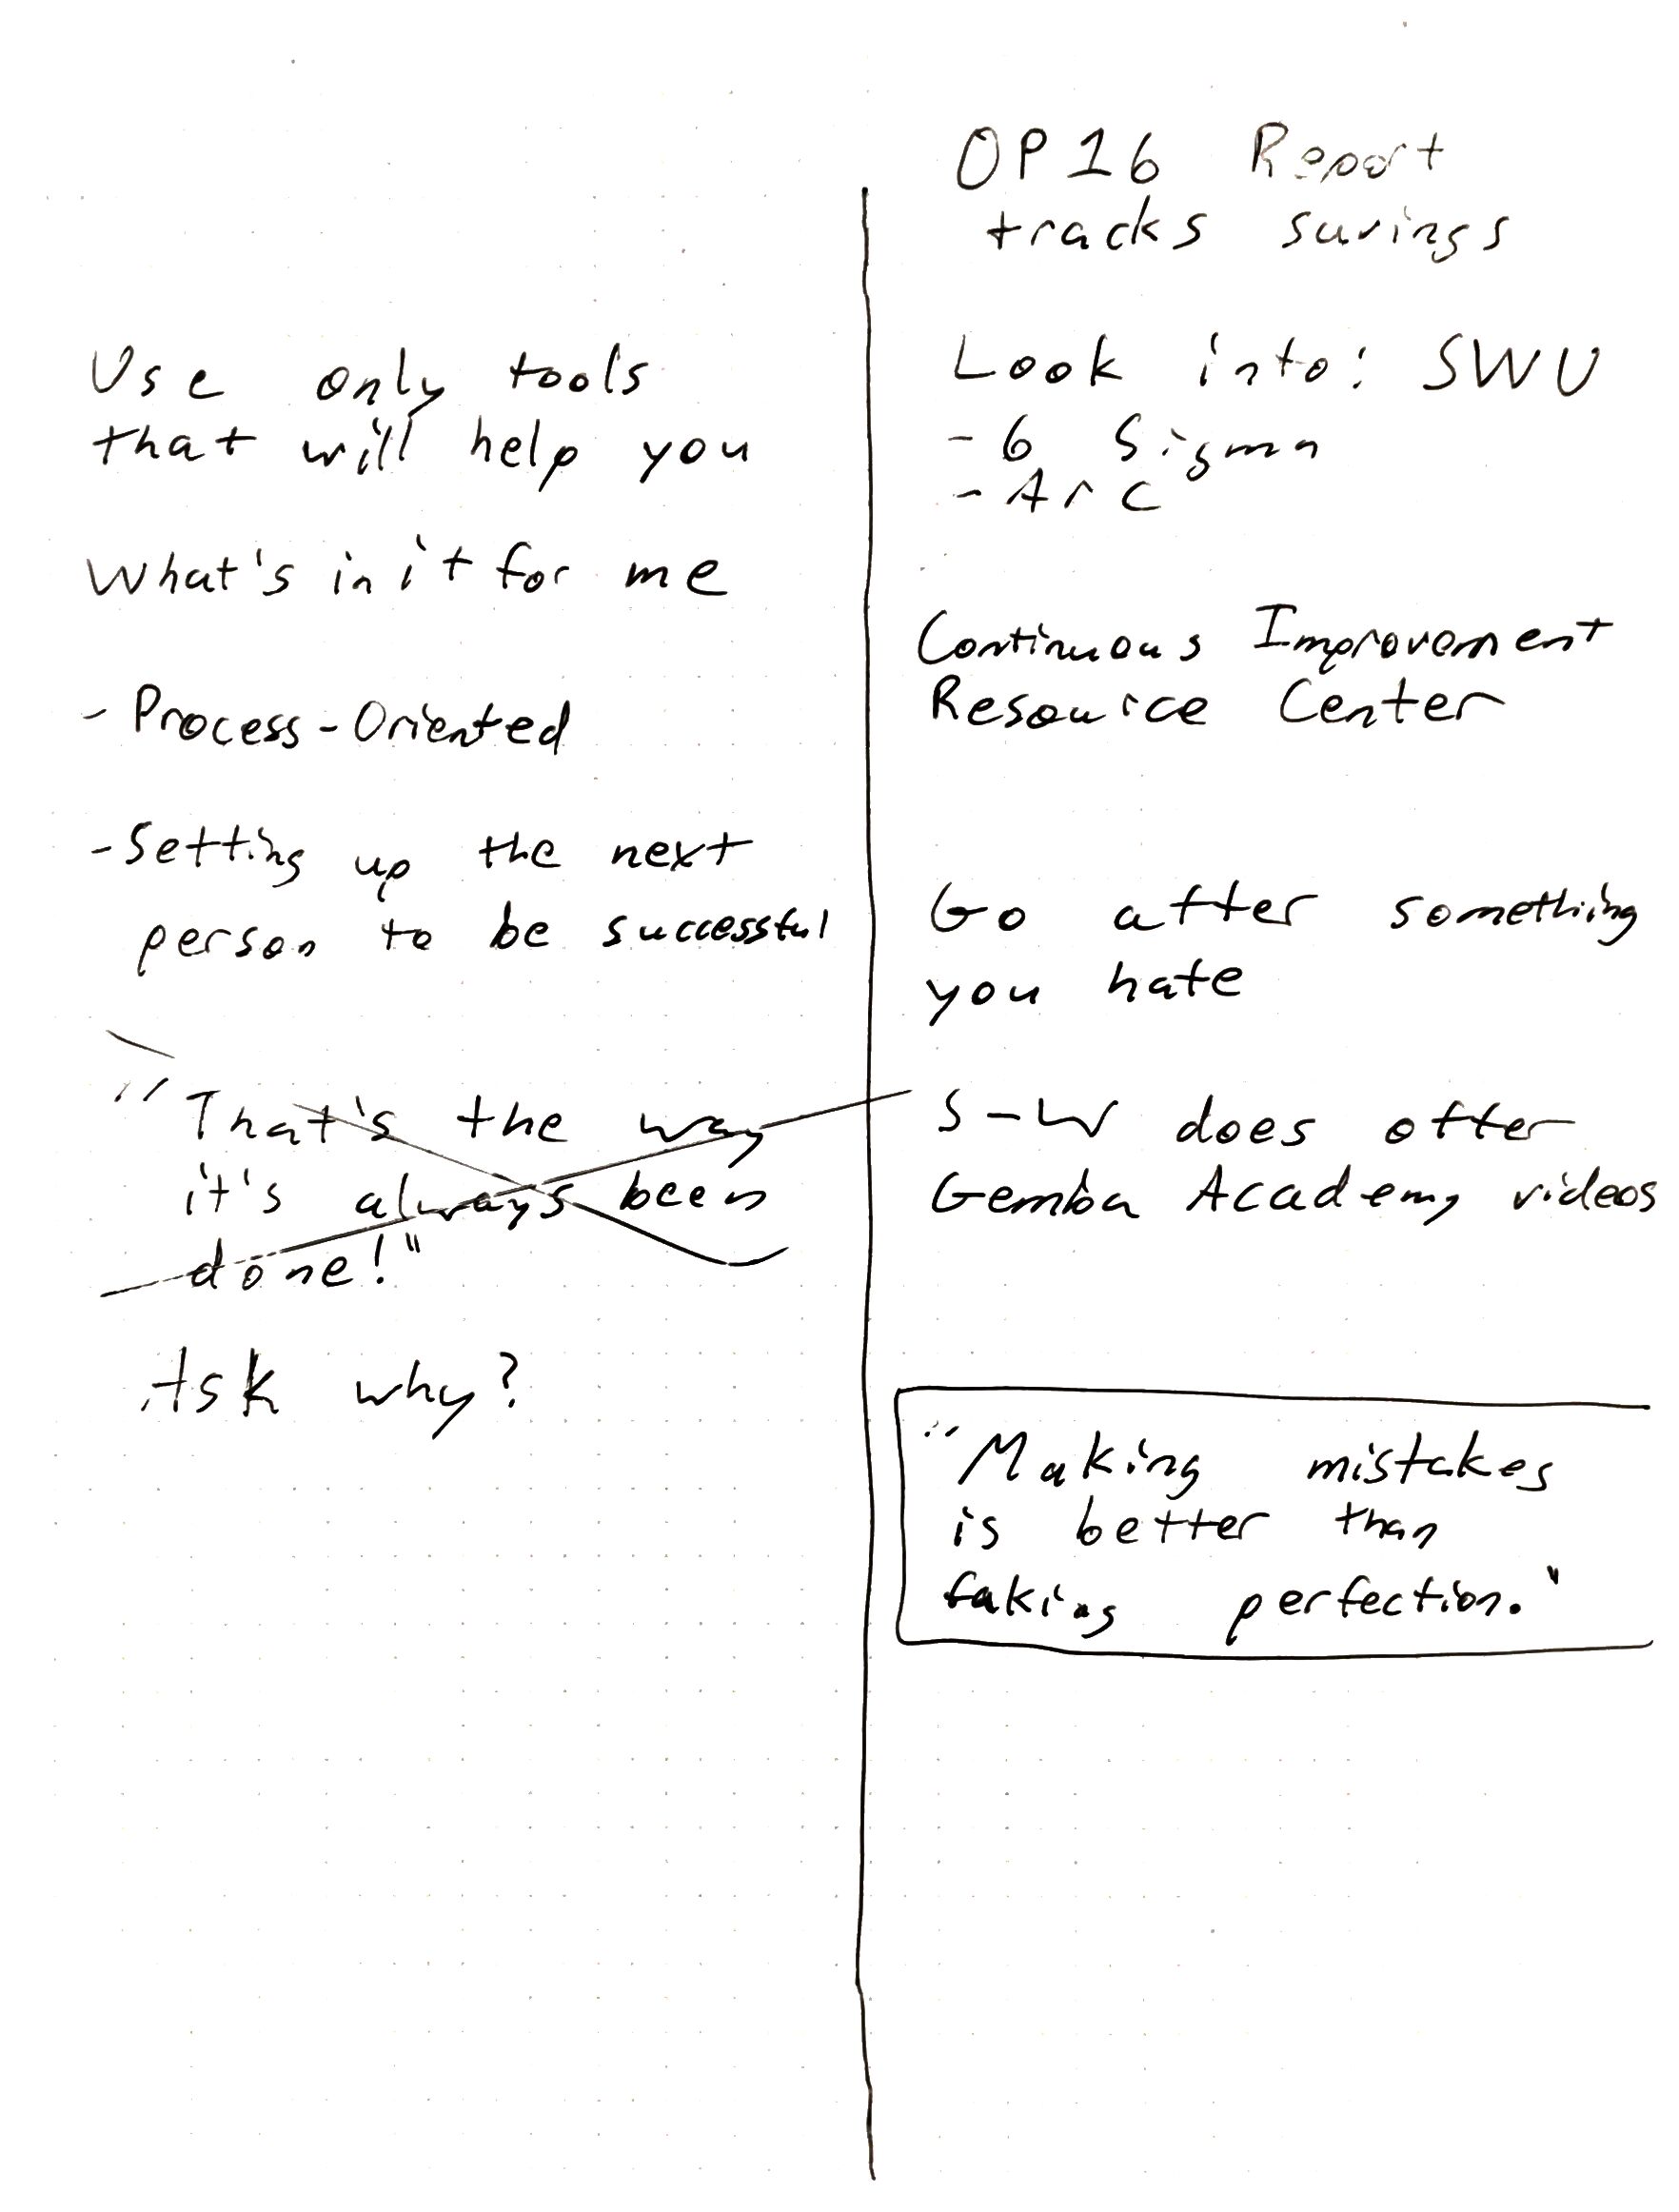 Use only tools
that will help you
What's in it for me
- Process-Oriented
- Setting up the next
person to be successful
"That's the way
it's always been
done!"
Ask why?
OP16 Report
tracks savings
Look into: SWU
- 6 Sigma
- Arc
Continuous Improvement
Resource Center
Go after something
you hate
S-W does offer
Gemba Academy videos
"Making mistakes
is better than
faking perfection."